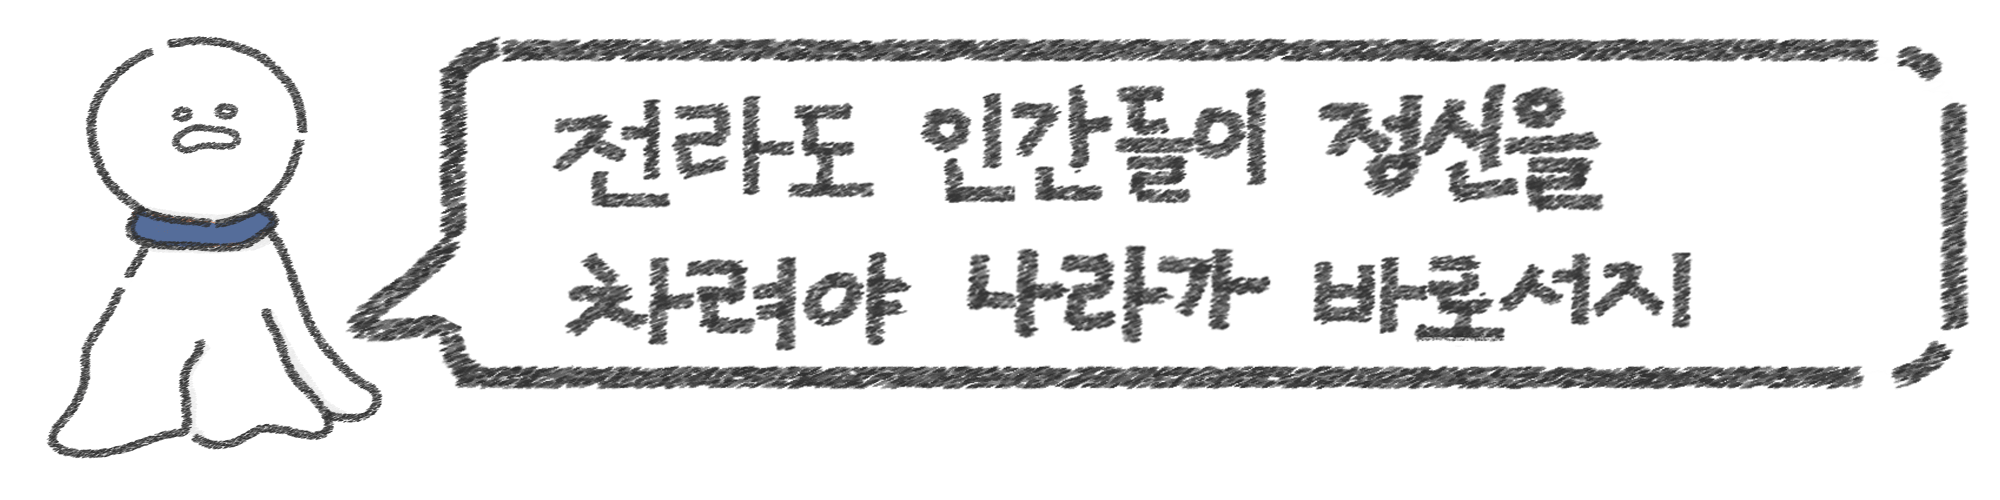 전라도 인간들이 정신을
차려야 나라가 바로서지